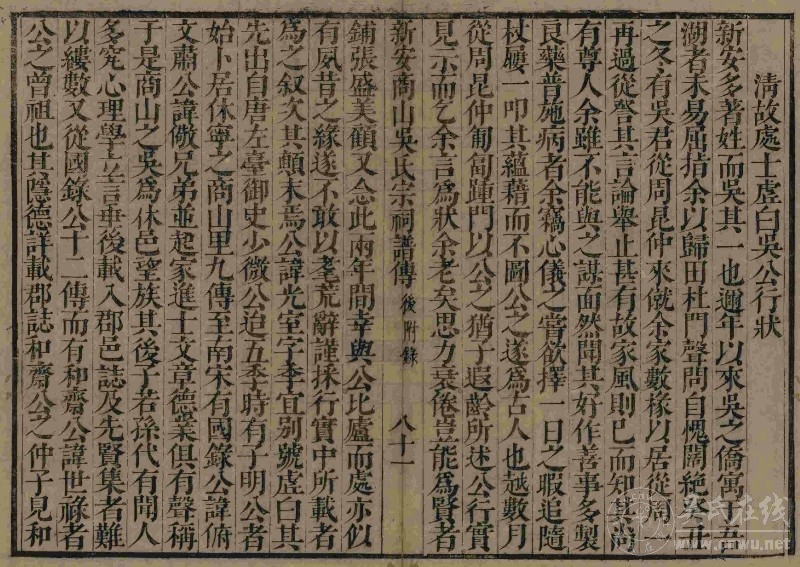 清故處士虛白吳公行狀
新安多著姓而吳其一也邇年以來吳之僑寓于吾
湖者未易屈指余以歸田杜門聲問自愧闊絕癸丑
之冬有吳君從周昆仲來僦余家數椽以居從周一
再過從詧其言論舉止甚有故家風則已而知其尚
有尊人余雖不能與之謀面然聞其好作善事多製
良藥普施病者余竊心儀之嘗欲擇一日之暇追隨
杖屨一叩其蘊藉而不圖公之遂為古人也越數月
從周昆仲匍匐踵門以公之猶子遐齡所述公行實
見示而乞余言為狀余老矣思力衰倦豈能為賢者
新安商山吳氏宗祠譜傳 後附錄 八十一
鋪張盛美顧又念此兩年間幸與公比廬而處亦似
有夙昔之緣遂不敢以耄荒辭謹採行實中所載者
為之叙次其顛末焉公諱光室字季宜別號虛白其
先出自唐左臺御史少微公迨五季時有子明公者
始卜居休寧之商山里九傳至南宋有國錄公諱俯
文肅公諱儆兄弟並起家進士文章德業俱有聲稱
于是商山之吳為休邑望族其後子若孫代有聞人
多究心理學立言垂後載入郡邑誌及先賢集者難
以縷數又從國錄公十二傳而有和齋公諱世祿者
公之曾祖也其隱德詳載郡誌和齋公之仲子見和
吴氏在线
www.cnwu.net